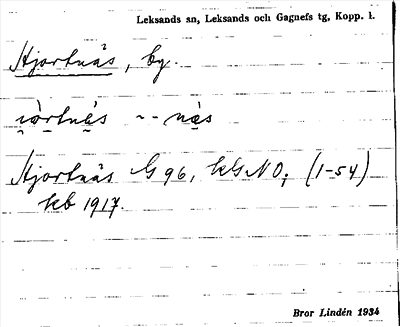 Leksands sn, Leksands och Gagnefs tg, Kopp. l.
Hjortnäs, by.
-- näs
Hjortnäs G 96, kGNO; (1-54)
kb 1917.
Bror Lindén 1934